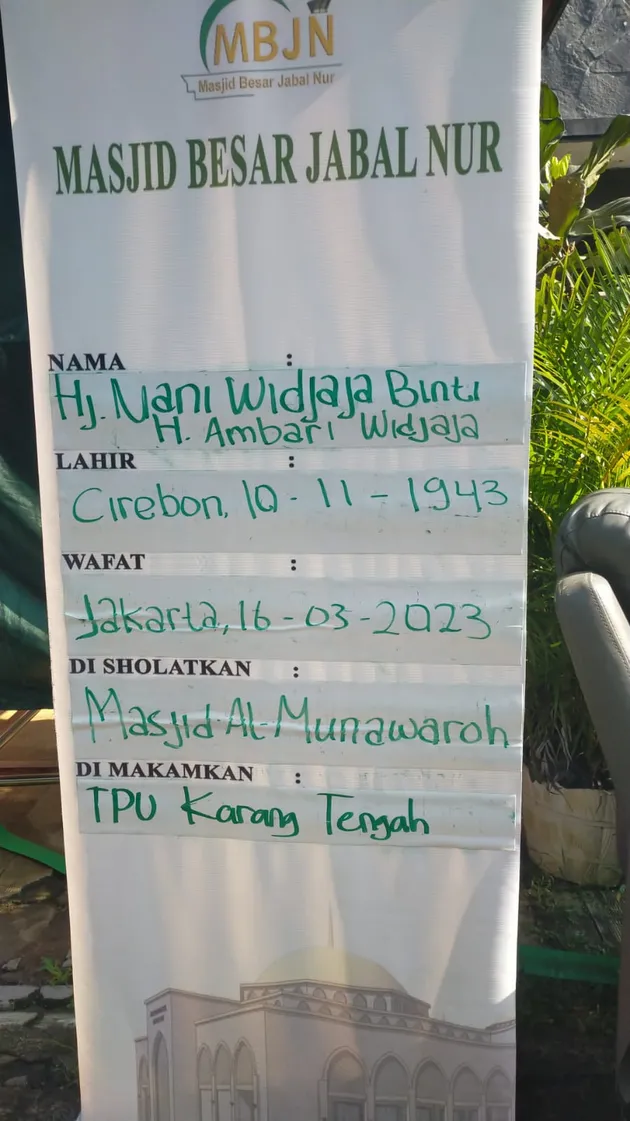 MBJN
Masjid Besar Jabal Nur
MASJID BESAR JABAL NUR
NAMA :
Hj. Nani Widjaja Binti
H. Ambari Widjaja
LAHIR :
Cirebon, 10 - 11 - 1943
WAFAT :
Jakarta, 16 - 03 - 2023
DI SHOLATKAN :
Masjid Al-Munawaroh
DI MAKAMKAN :
TPU Karang Tengah